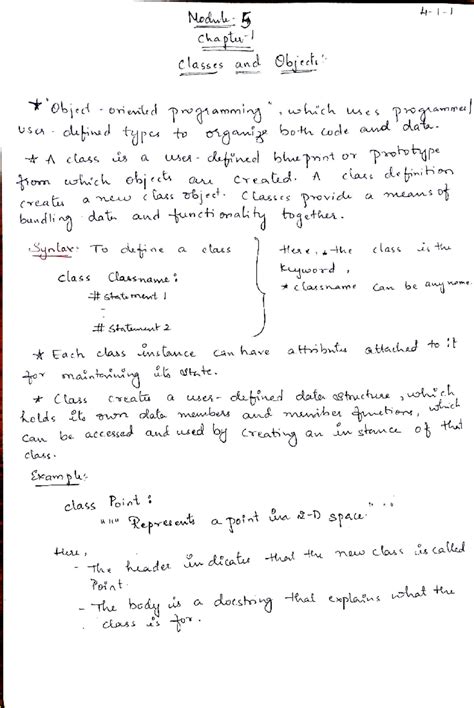 4-1-1
Module-5
Chapter-1
Classes and Objects:
* "Object-oriented programming", which uses programmer/
user-defined types to organize both code and data.
* A class is a user-defined blueprint or prototype
from which objects are created. A class definition
creates a new class object. Classes provide a means of
bundling data and functionality together.
Syntax: To define a class
class Classname:
# Statement 1
...
# Statement 2
Here, * the class is the
Keyword,
* classname can be any name.
* Each class instance can have attributes attached to it
for maintaining its state.
* Class creates a user-defined data structure, which
holds its own data members and member functions, which
can be accessed and used by creating an instance of that
class.
Example:
class Point:
""" Represents a point in 2-D space."""
Here,
- The header indicates that the new class is called
Point.
- The body is a docstring that explains what the
class is for.